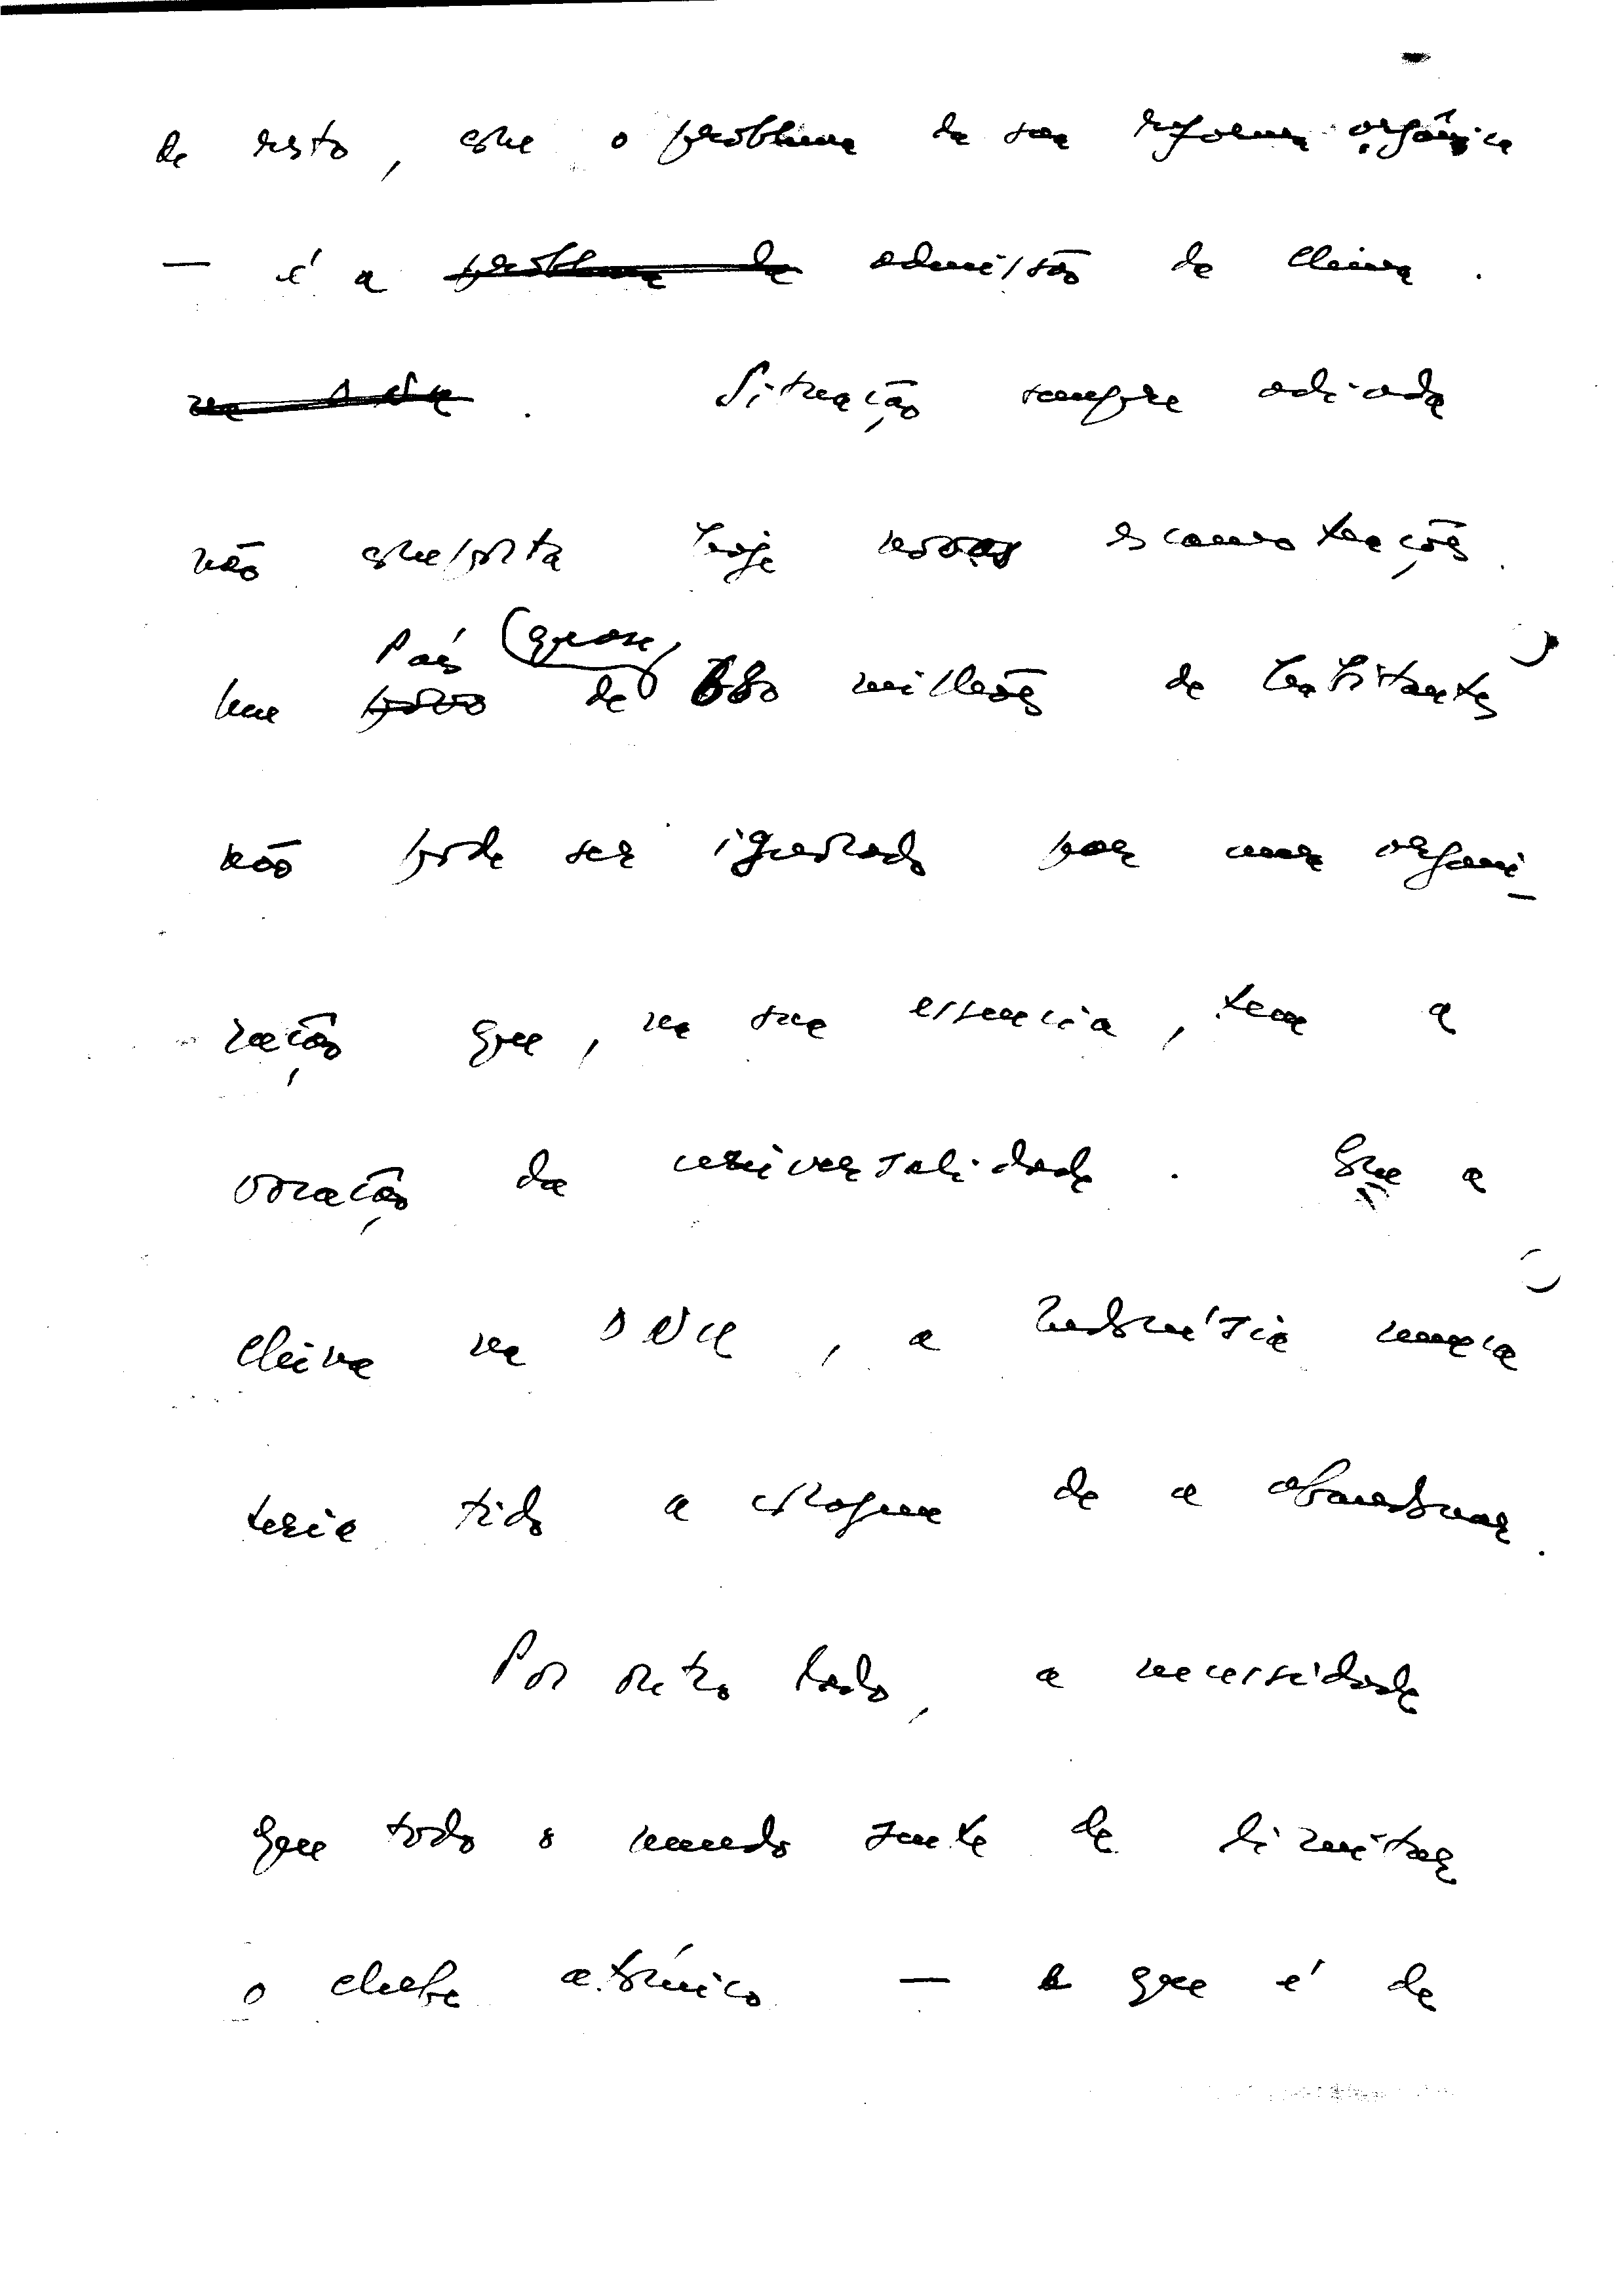 de resto, com o problema da sua reforma orgânica
— é a problema da admissão da China.
na ONU. Situação sempre adiada
não comporta hoje novas escamoteações.
País (quase)
Um povo de 680 milhões de habitantes
não pode ser ignorado por uma organi-
zação que, na sua essencia, tem a
vocação da universalidade. Com a
China na ONU, a Indonésia nunca
teria tido a coragem de a abandonar.
Por outro lado, a necessidade
que todo o mundo sente de limitar
o clube atómico — e que é de